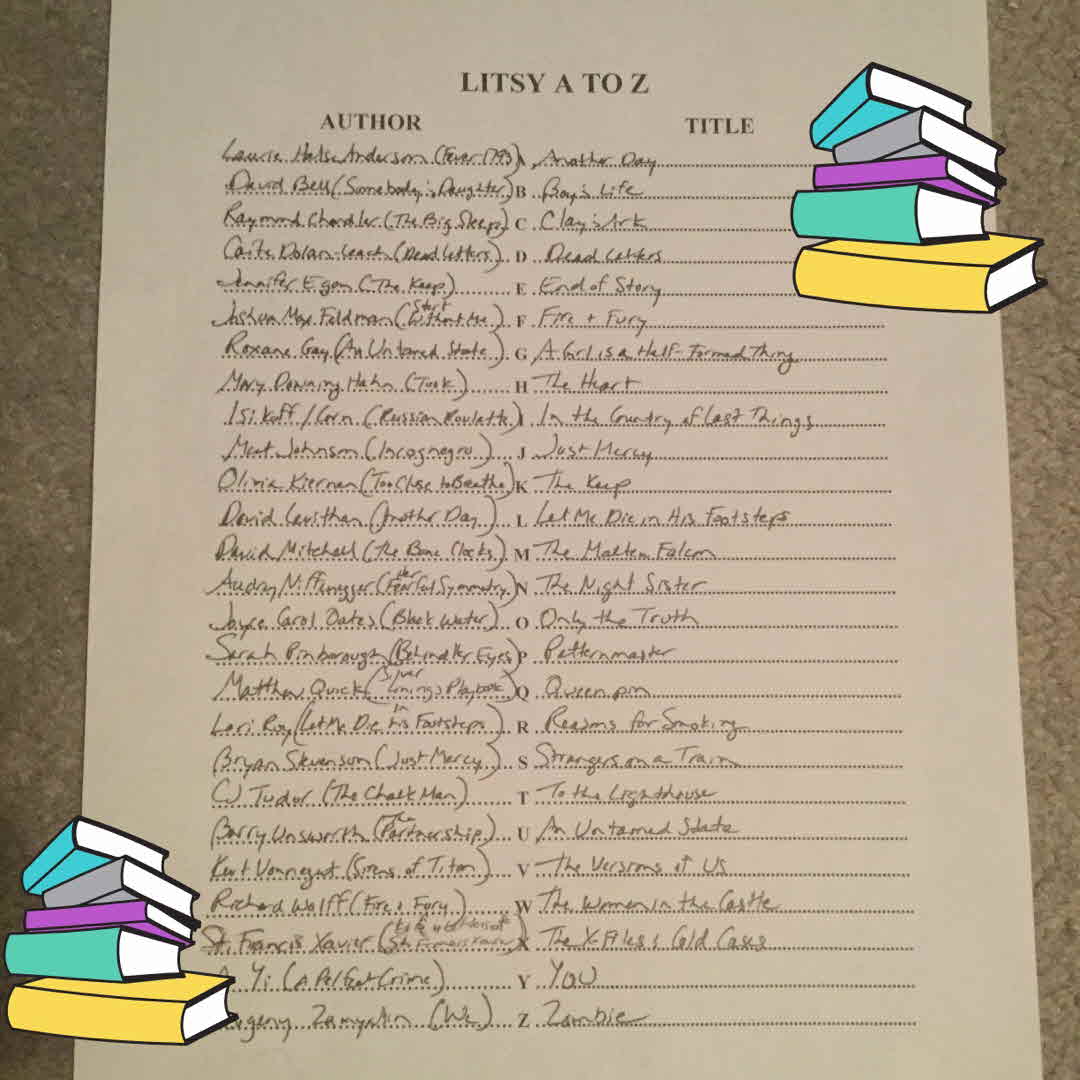 LITSY A TO Z
AUTHOR TITLE
Laurie Halse Anderson (Fever 1793) A Another Day
David Bell (Somebody's Daughter) B Boy's Life
Raymond Chandler (The Big Sleep) C Clay's Ark
Caite Dolan-Leach (Dead Letters) D Dead Letters
Jennifer Egan (The Keep) E End of Story
Joshua Max Feldman (Start Without Me) F Fire + Fury
Roxane Gay (An Untamed State) G A Girl is a Half-Formed Thing
Mary Downing Hahn (Took) H The Heart
Isikoff/Corn (Russian Roulette) I In the Country of Last Things
Mat Johnson (Incognegro) J Just Mercy
Olivia Kiernan (Too Close to Breathe) K The Keep
David Levithan (Another Day) L Let Me Die in His Footsteps
David Mitchell (The Bone Clocks) M The Maltese Falcon
Audrey Niffenegger (Her Fearful Symmetry) N The Night Sister
Joyce Carol Oates (Black Water) O Only the Truth
Sarah Pinborough (Behind Her Eyes) P Patternmaster
Matthew Quick (Silver Linings Playbook) Q Queenpin
Lori Roy (Let Me Die in His Footsteps) R Reasons for Smoking
Bryan Stevenson (Just Mercy) S Strangers on a Train
CJ Tudor (The Chalk Man) T To the Lighthouse
Barry Unsworth (The Partnership) U An Untamed State
Kurt Vonnegut (Sirens of Titan) V The Versions of Us
Richard Wolff (Fire & Fury) W The Women in the Castle
St. Francis Xavier (St. Francis Xavier) X The X-Files: Cold Cases
Yi (A Perfect Crime) Y YOU
Zamyatin (We) Z Zombie